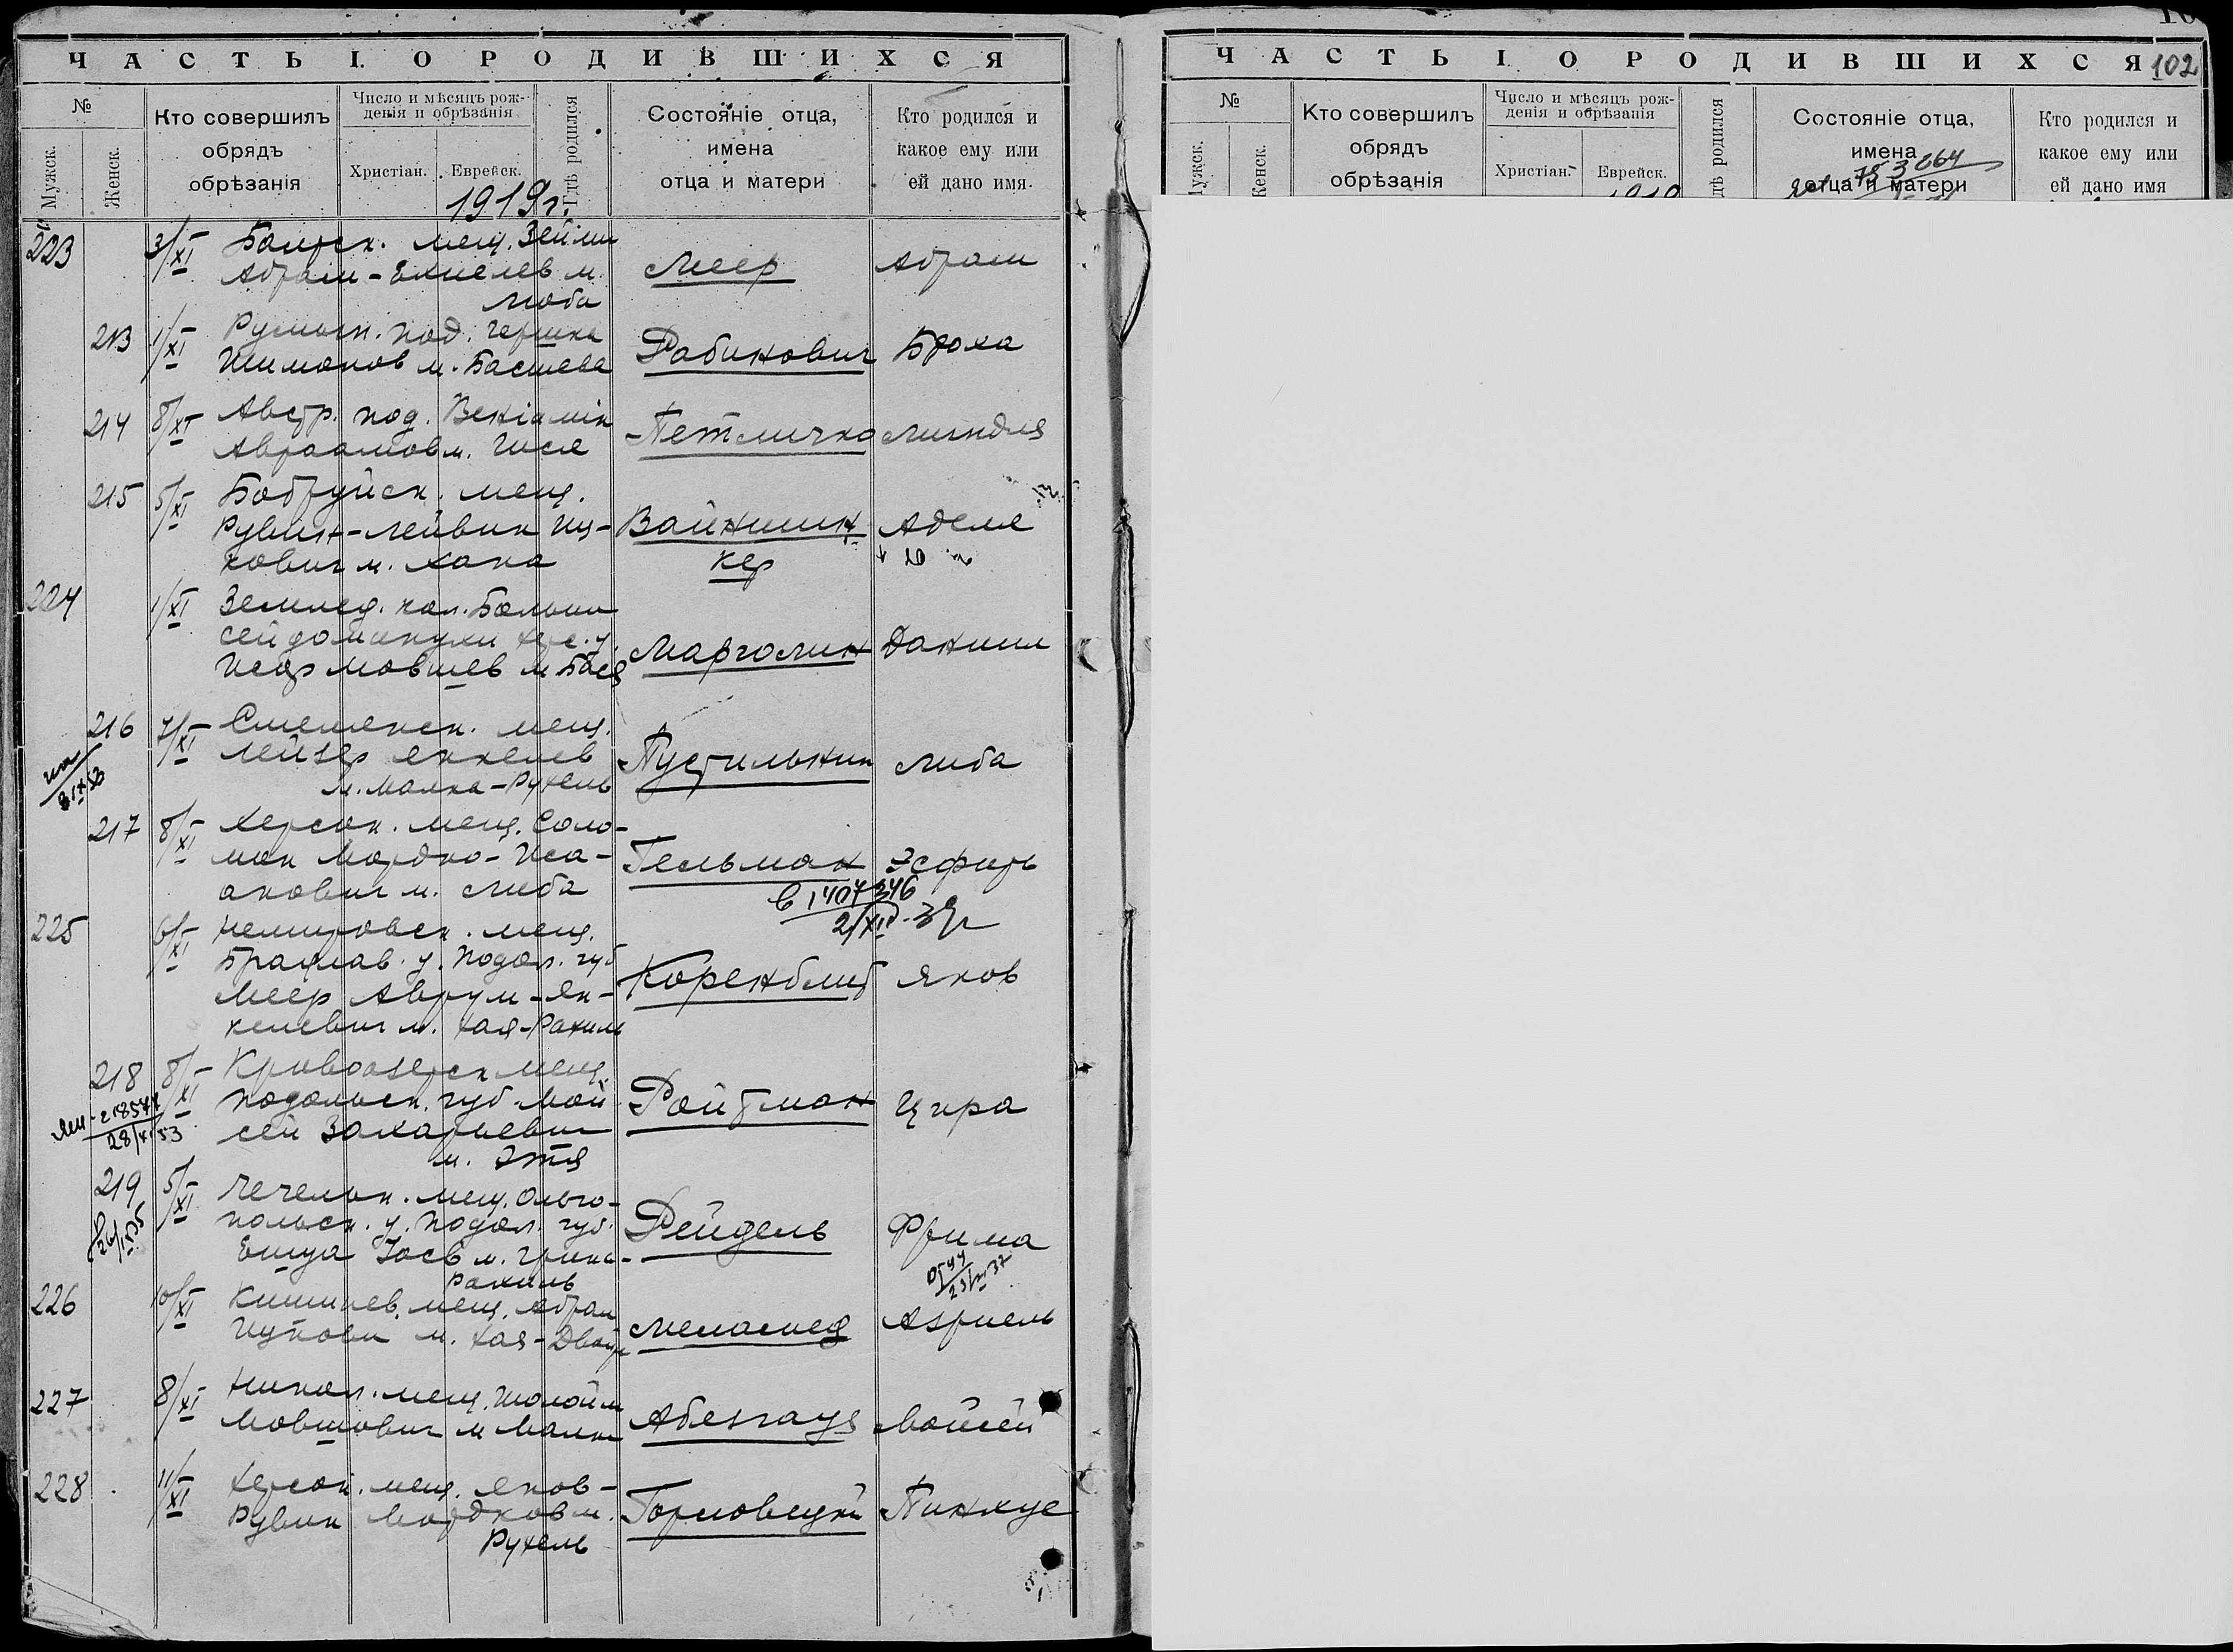 ЧАСТЬ I. О РОДИВШИХСЯ
№
Мужск.
Женск.
Кто совершилъ
обрядъ
обрѣзанія
Число и мѣсяцъ рож-
денія и обрѣзанія
Христіан.
Еврейск.
Гдѣ родился
Состояніе отца,
имена
отца и матери
Кто родился и
какое ему или
ей дано имя.
1919 г.
223 3/XI мещ.
Абрам - м. Меер Абрам
Люба
213 1/XI Румын. под. Гершка
Шимонов м. Басшева Рабинович Броха
214 8/XI Австр. под. Веніамин
Авраамов м. Гися Петличко Миндля
215 5/XI Бобруйск. мещ.
Рувин-Лейвик Иц-
кович м. Хана Вайншин-
кер Аделя
224 1/XI Земллед. кол. Больш
Сейдоминухи Хер. у.
Исар Мовшев м. Бася Марголин Даниил
216 7/XI мещ.
Лейзер Янкелев
м. Малка-Рухель Пустильник Либа
217 8/XI Херсон. мещ. Соло-
мон Мордко-Иса-
акович м. Либа Гельман Эсфирь
1407346
225 6/XI Немировск. мещ.
Брацлав. у. Подол. губ
Меер Аврум-Ян-
келевич м. Хая-Рахиль Коренблит Яков
218 8/XI Кривоозерск мещ.
Подольск. губ. Мой
сей Захарьевич
м. Этя Ройтман Цира
28/XI 53
219 5/XI Чечельн. мещ. Ольго-
польск. у. Подол. губ.
Емуа Іосев м.
Рахиль Рейдель Фрима
226 10/XI Кишинев. мещ. Абрам
м. Хая-Двойра Меламед Азриель
227 8/XI Никол. мещ. Шолойм
Мовшович м Малка Абезгауз Мойсей
228 11/XI Херсон. мещ. Яков-
Рувин Мордков м.
Рухель Горловецкий Пинхус
ЧАСТЬ I. О РОДИВШИХСЯ
102
№
Мужск.
Женск.
Кто совершилъ
обрядъ
обрѣзанія
Число и мѣсяцъ рож-
денія и обрѣзанія
Христіан.
Еврейск.
Состояніе отца,
имена
отца и матери
Кто родился и
какое ему или
ей дано имя